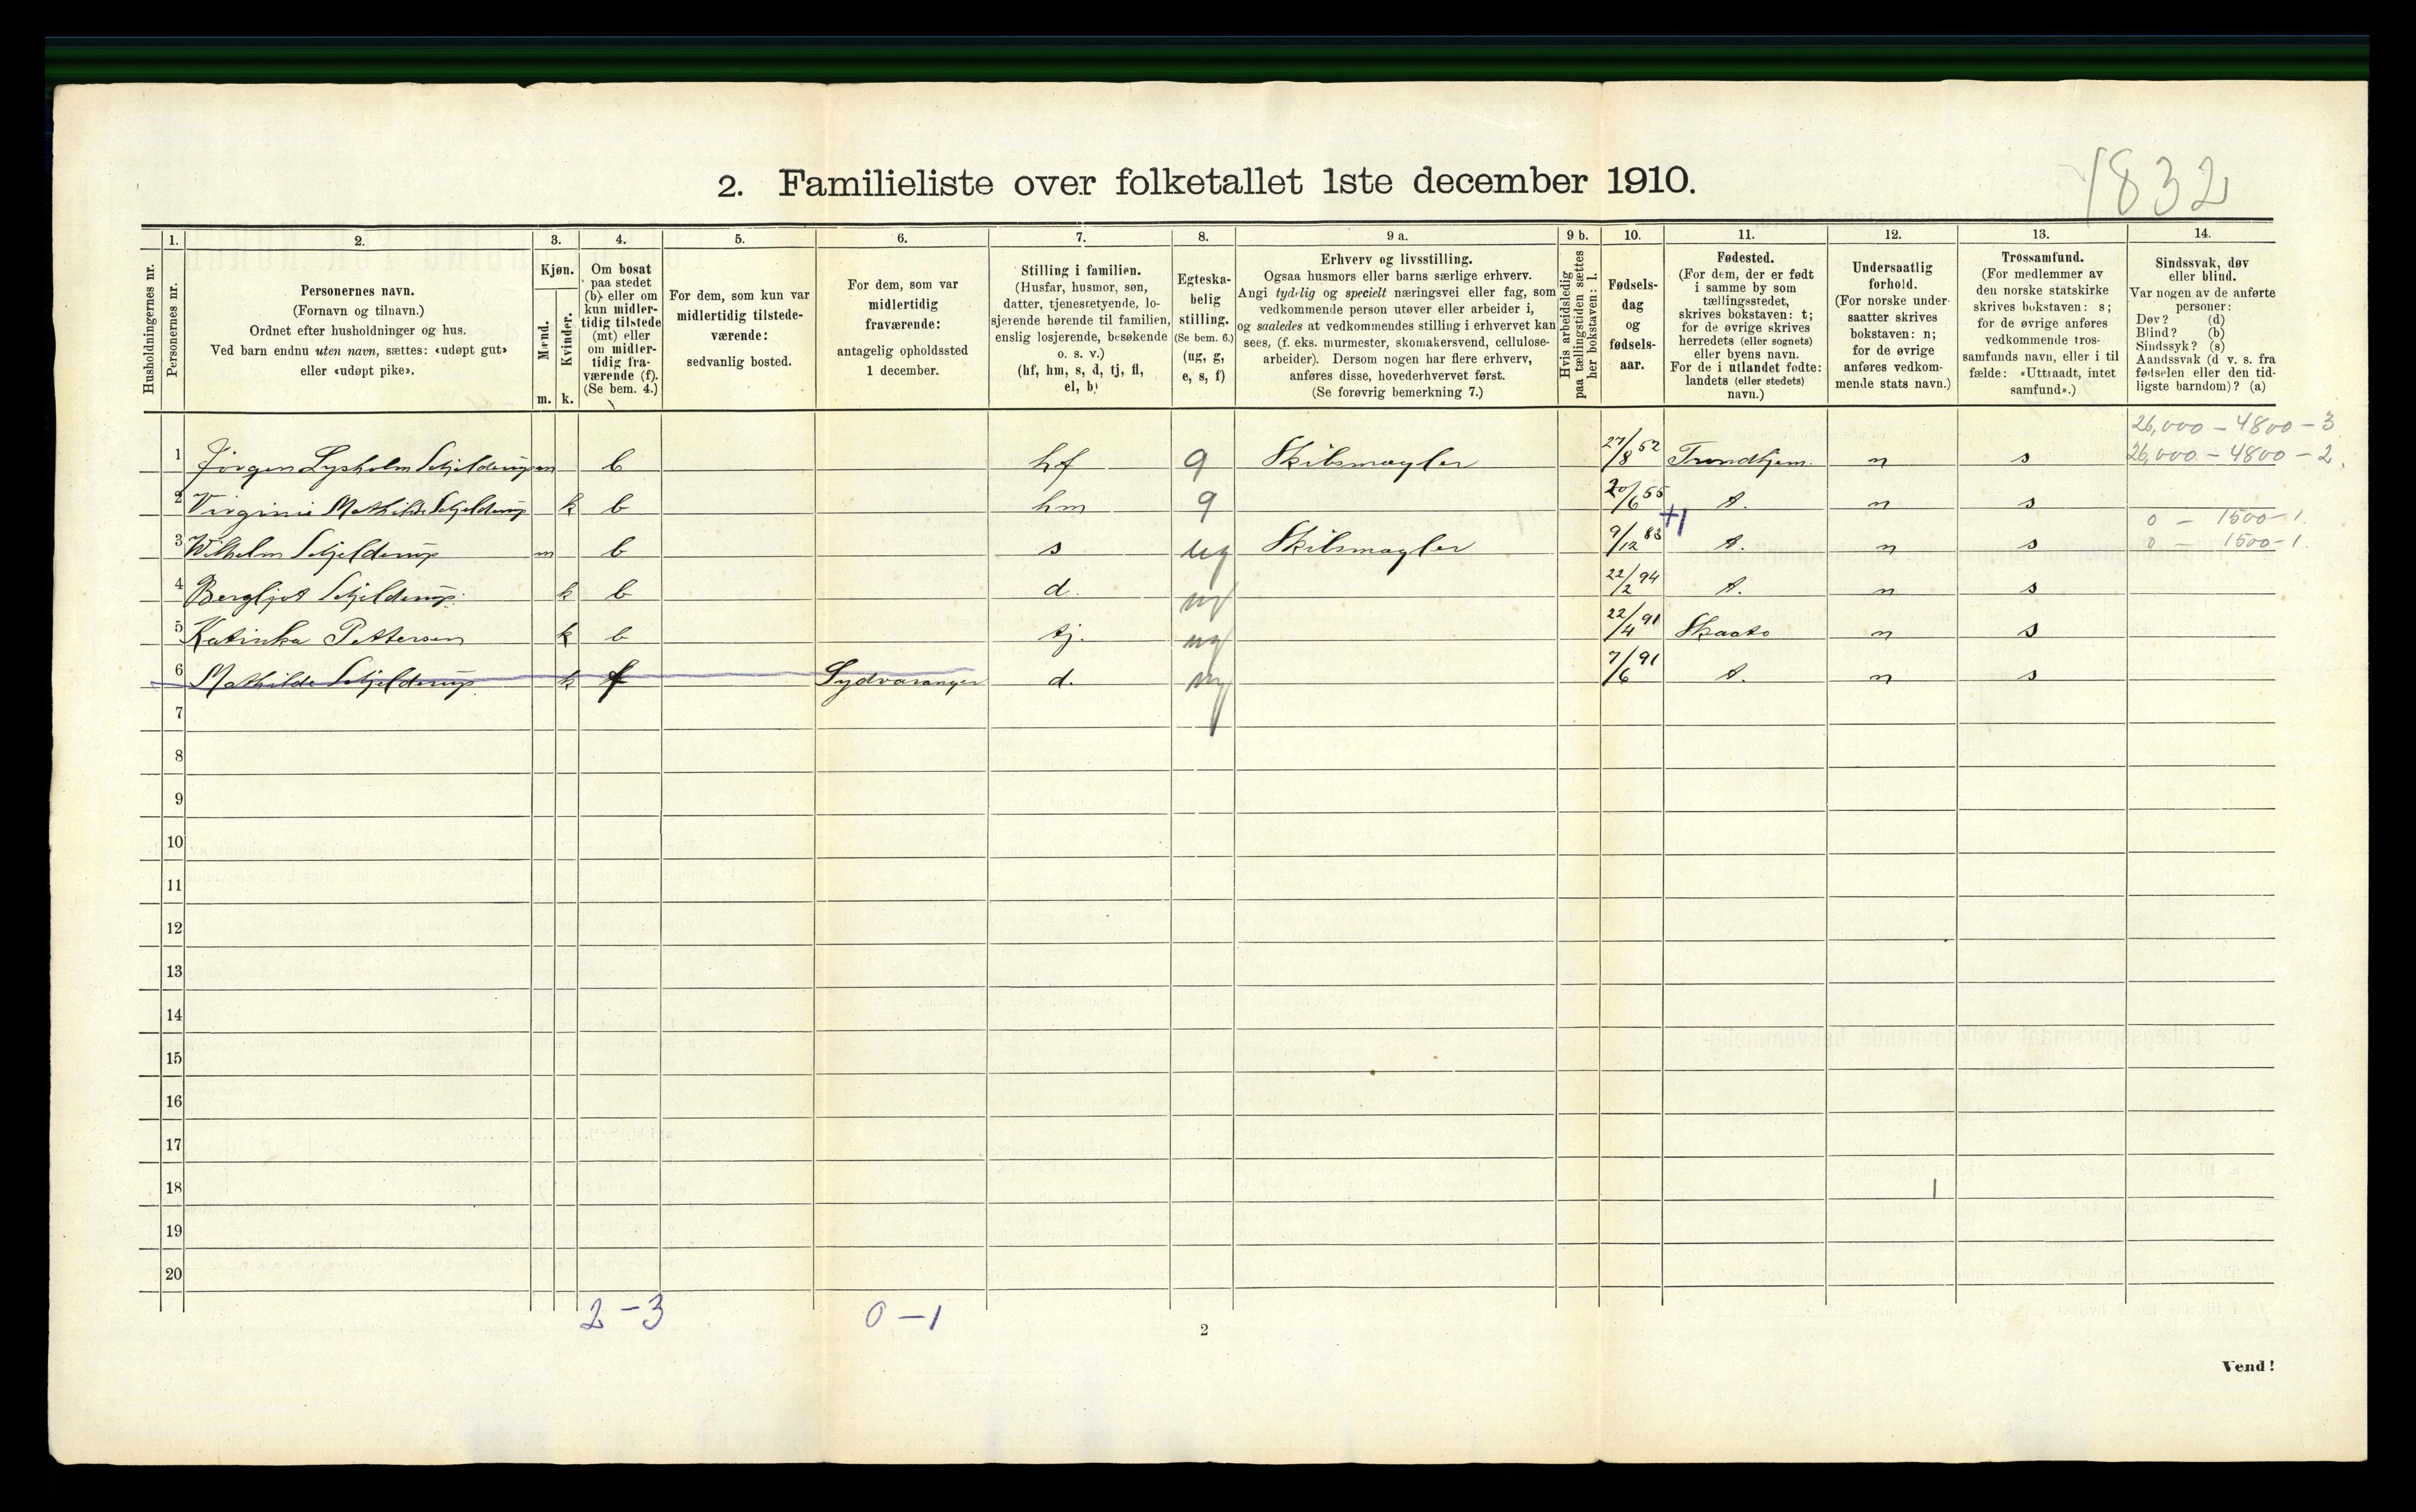 1832
2. Familieliste over folketallet 1ste december 1910.
Husholdningernes nr.
1.
Personernes nr.
2.
Personernes navn.
(Fornavn og tilnavn.)
Ordnet efter husholdninger og hus.
Ved barn endnu uten navn, sættes: «udøpt gut»
eller «udøpt pike».
3.
Kjøn.
Mænd.
Kvinder.
m. k.
4.
Om bosat
paa stedet
(b) eller om
kun midler-
tidig tilstede
(mt) eller
om midler-
tidig fra-
værende (f).
(Se bem. 4.)
5.
For dem, som kun var
midlertidig tilstede-
værende:
sedvanlig bosted.
6.
For dem, som var
midlertidig
fraværende:
antagelig opholdssted
1 december.
7.
Stilling i familien.
(Husfar, husmor, søn,
datter, tjenestetyende, lo-
sjerende hørende til familien,
enslig losjerende, besøkende
o. s. v.)
(hf, hm, s, d, tj, fl,
el, b)
8.
Egteska-
belig
stilling.
(Se bem. 6.)
(ug, g,
e, s, f)
9 a.
Erhverv og livsstilling.
Ogsaa husmors eller barns særlige erhverv.
Angi tydelig og specielt næringsvei eller fag, som
vedkommende person utøver eller arbeider i,
og saaledes at vedkommendes stilling i erhvervet kan
sees, (f. eks. murmester, skomakersvend, cellulose-
arbeider). Dersom nogen har flere erhverv,
anføres disse, hovederhvervet først.
(Se forøvrig bemerkning 7.)
9 b.
Hvis arbeidsledig
paa tællingstiden sættes
her bokstaven: l.
10.
Fødsels-
dag
og
fødsels-
aar.
11.
Fødested.
(For dem, der er født
i samme by som
tællingsstedet,
skrives bokstaven: t;
for de øvrige skrives
herredets (eller sognets)
eller byens navn.
For de i utlandet fødte:
landets (eller stedets)
navn.)
12.
Undersaatlig
forhold.
(For norske under-
saatter skrives
bokstaven: n;
for de øvrige
anføres vedkom-
mende stats navn.)
13.
Trossamfund.
(For medlemmer av
den norske statskirke
skrives bokstaven: s;
for de øvrige anføres
vedkommende tros-
samfunds navn, eller i til
fælde: «Uttraadt, intet
samfund».)
14.
Sindssvak, døv
eller blind.
Var nogen av de anførte
personer:
Døv? (d)
Blind? (b)
Sindssyk? (s)
Aandssvak (d. v. s. fra
fødselen eller den tid-
ligste barndom)? (a)
26,000 - 4800 - 3
1 Jörgen Lysholm Schjelderup m b hf g Skibsmægler 27/8 52 Trondhjem. n s 26,000 - 4800 - 2.
2 Virginie Mathilde Schjelderup k b hm g 20/6 55 t. n s
+1 0 - 1500 - 1.
3 Wilhelm Schjelderup m b s ug Skibsmægler 9/12 83 t. n s 0 - 1500 - 1.
4 Bergljot Schjelderup. k b d. ug 22/2 94 t. n s
5 Katinka Pettersen k b tj. ug 22/4 91 Skaatø n s
6 Mathilde Schjelderup k f Sydvaranger d. ug 7/6 91 t. n s
7
8
9
10
11
12
13
14
15
16
17
18
19
20
2 - 3 0 - 1
2
Vend!